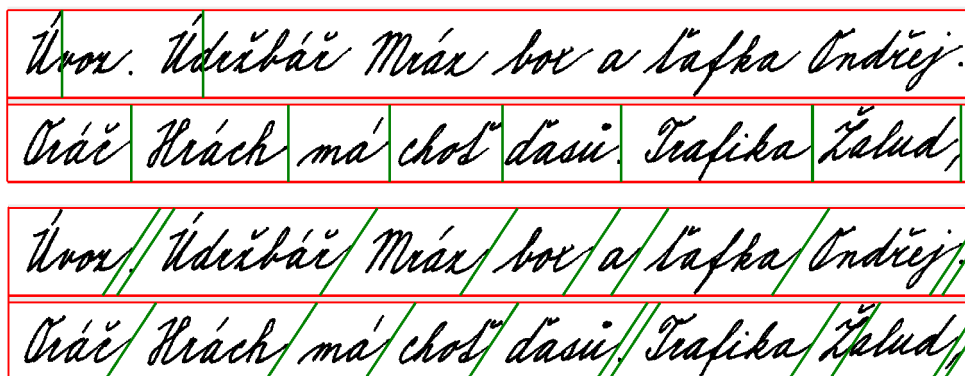 Úvoz. Údržbář Mráz box a ťafka Ondřej.
Oráč Hrách má choť ďasů. Trafika Žalud,
Úvoz. Údržbář Mráz box a ťafka Ondřej.
Oráč Hrách má choť ďasů. Trafika Žalud,